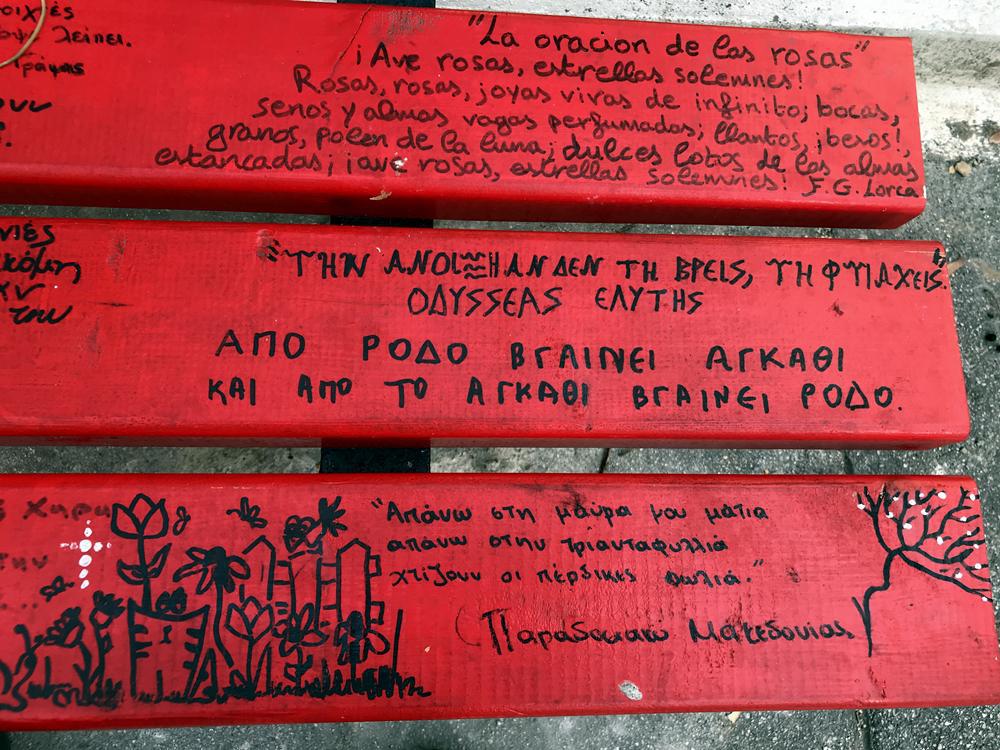 οιχιές
λείπει.
"La oracion de las rosas"
¡Ave rosas, estrellas solemnes!
Rosas, rosas, joyas vivas de infinito; bocas,
senos y almas vagas perfumadas; llantos, ¡besos!,
granos, polen de la luna; dulces lotos de las almas
estancadas; ¡ave rosas, estrellas solemnes! F.G. Lorca
"ΤΗΝ ΑΝΟΙΞΗ ΑΝ ΔΕΝ ΤΗ ΒΡΕΙΣ, ΤΗ ΦΤΙΑΧΕΙΣ"
ΟΔΥΣΣΕΑΣ ΕΛΥΤΗΣ
ΑΠΟ ΡΟΔΟ ΒΓΑΙΝΕΙ ΑΓΚΑΘΙ
ΚΑΙ ΑΠΟ ΤΟ ΑΓΚΑΘΙ ΒΓΑΙΝΕΙ ΡΟΔΟ.
"Απάνω στη μαύρα μου μάτια
απάνω στην τριανταφυλλιά
χτίζουν οι πέρδικες φωλιά."
Παραδοσιακό Μακεδονίας